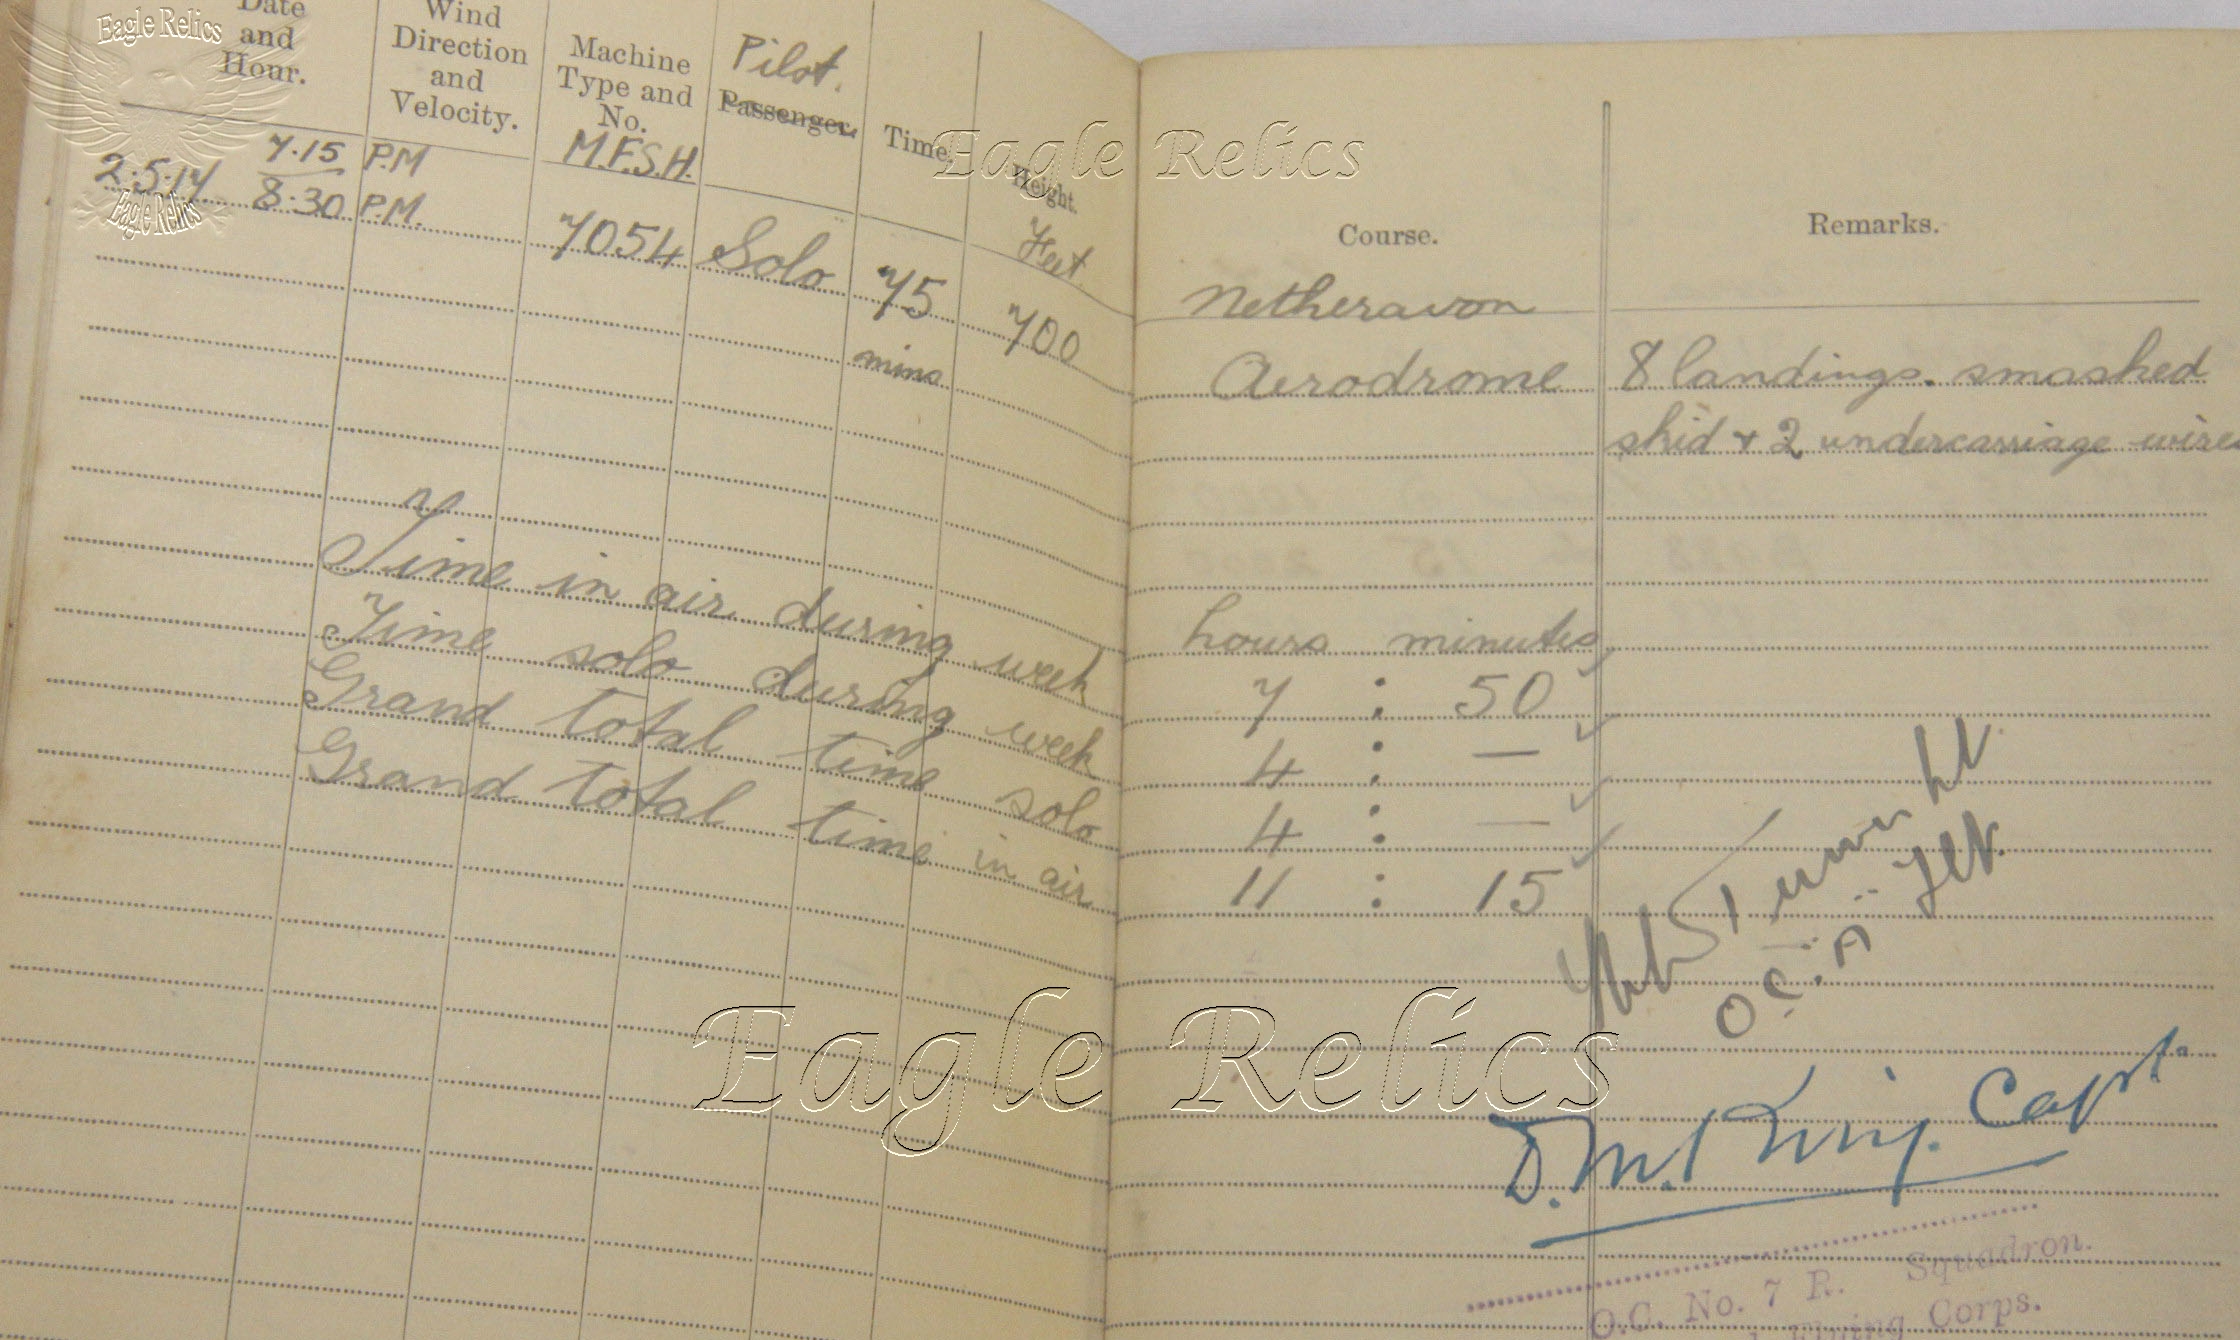 Eagle Relics
Date and Hour.
Wind Direction and Velocity.
Machine Type and No.
Pilot.
Passenger.
Time.
Height.
Course.
Remarks.
Eagle Relics
Eagle Relics
2.5.17 7.15 P.M M.F.S.H. Feet Netheravon
8.30 P.M. 7054 Solo 75 700 Aerodrome 8 landings. smashed
mins skid + 2 undercarriage wires
hours minutes
Time in air during week 7 : 50
Time solo during week 4 : —
Grand total time solo 4 : —
Grand total time in air 11 : 15
Lt.
O.C. A Flt.
D.M. King. Capt.
O.C. No. 7 R. Squadron.
Flying Corps.
Eagle Relics